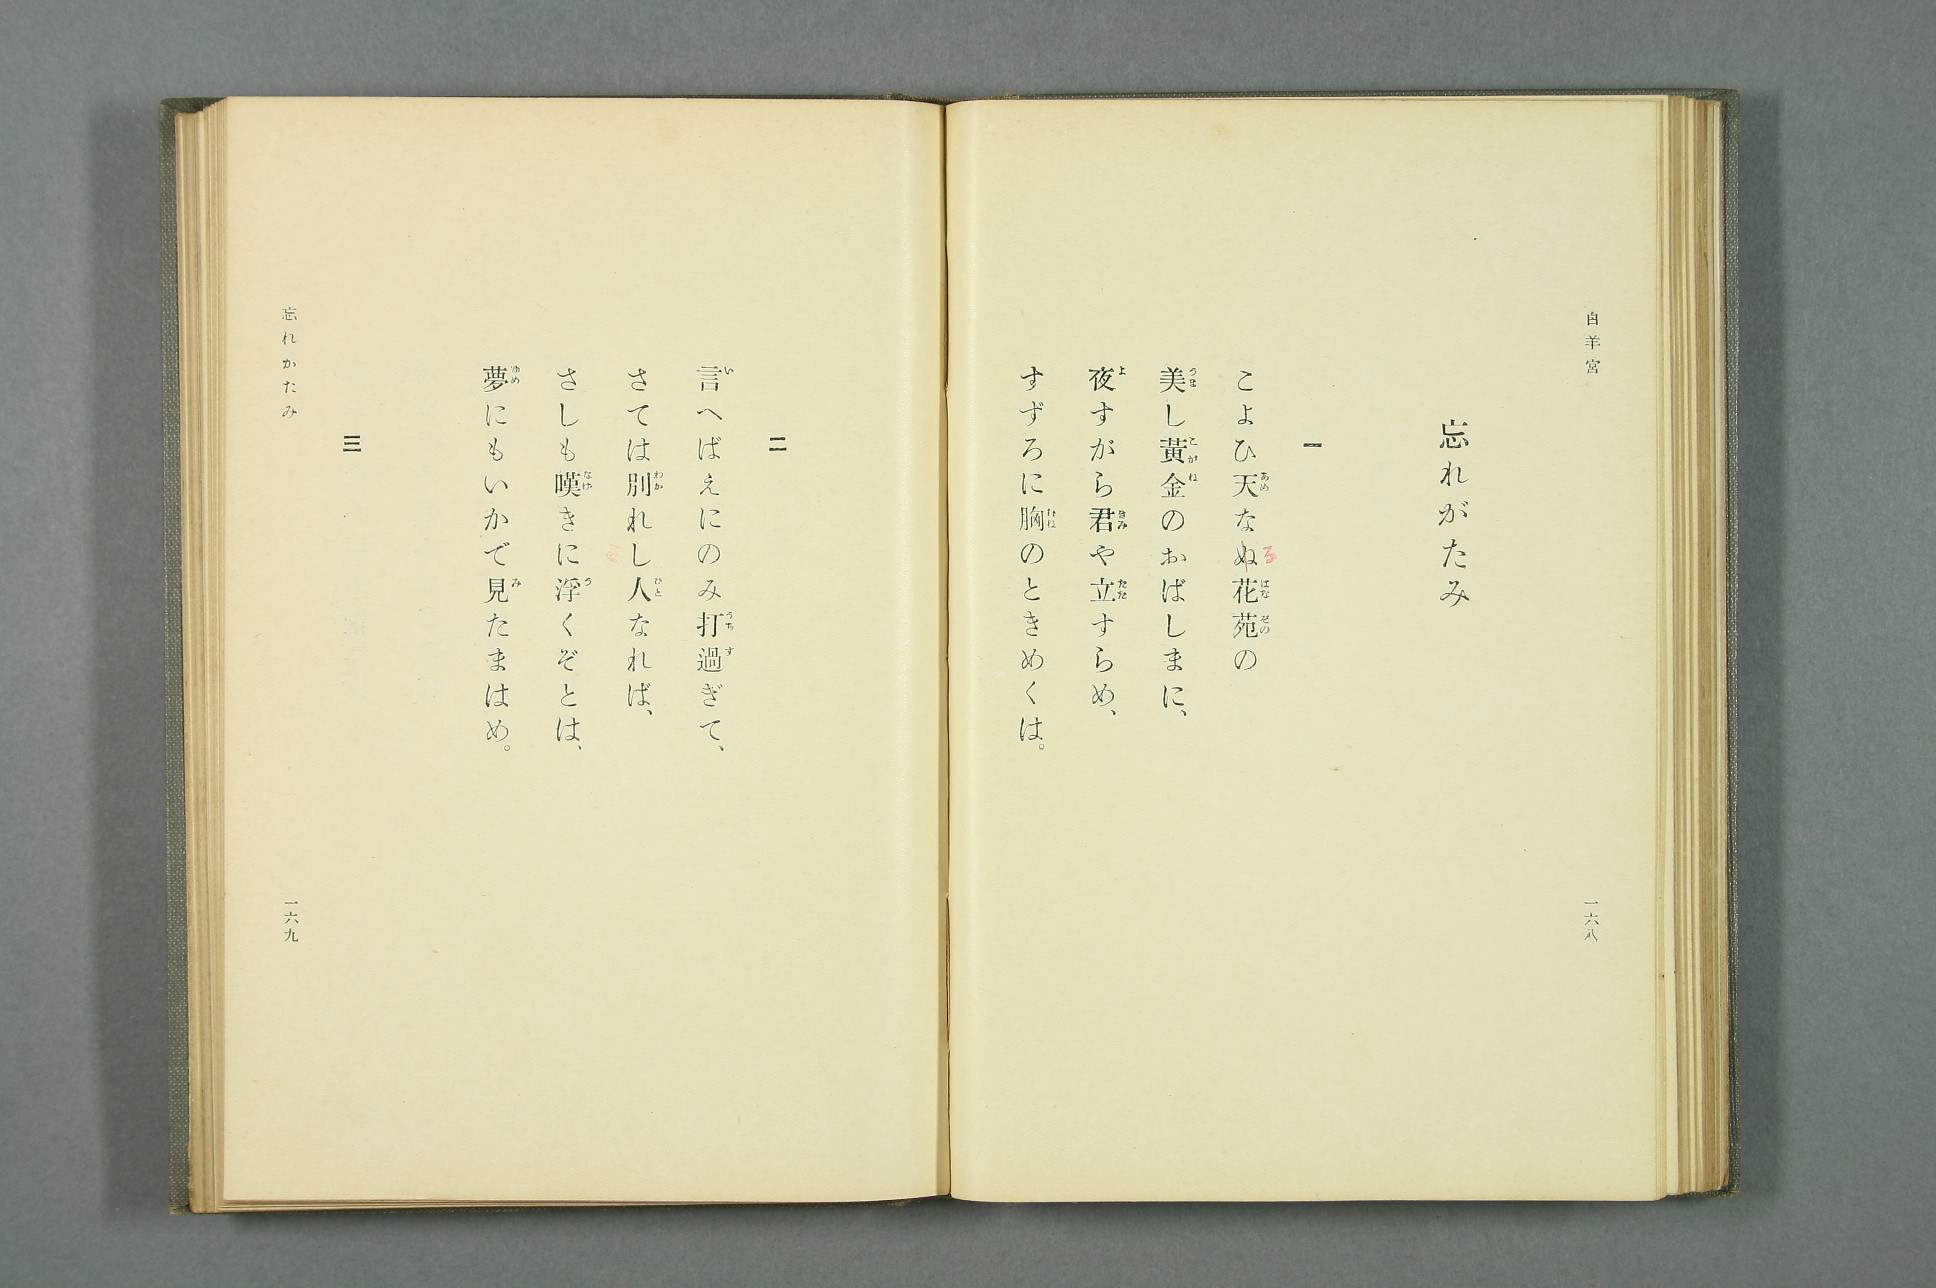 白羊宮
忘れがたみ
一
こよひ天なぬ花苑の
る
美し黃金のおばしまに、
夜すがら君や立すらめ、
すずろに胸のときめくは。
一六八
二
言へばえにのみ打過ぎて、
さては別れし人なれば、
さしも嘆きに浮くぞとは、
夢にもいかで見たまはめ。
三
忘れかたみ
一六九